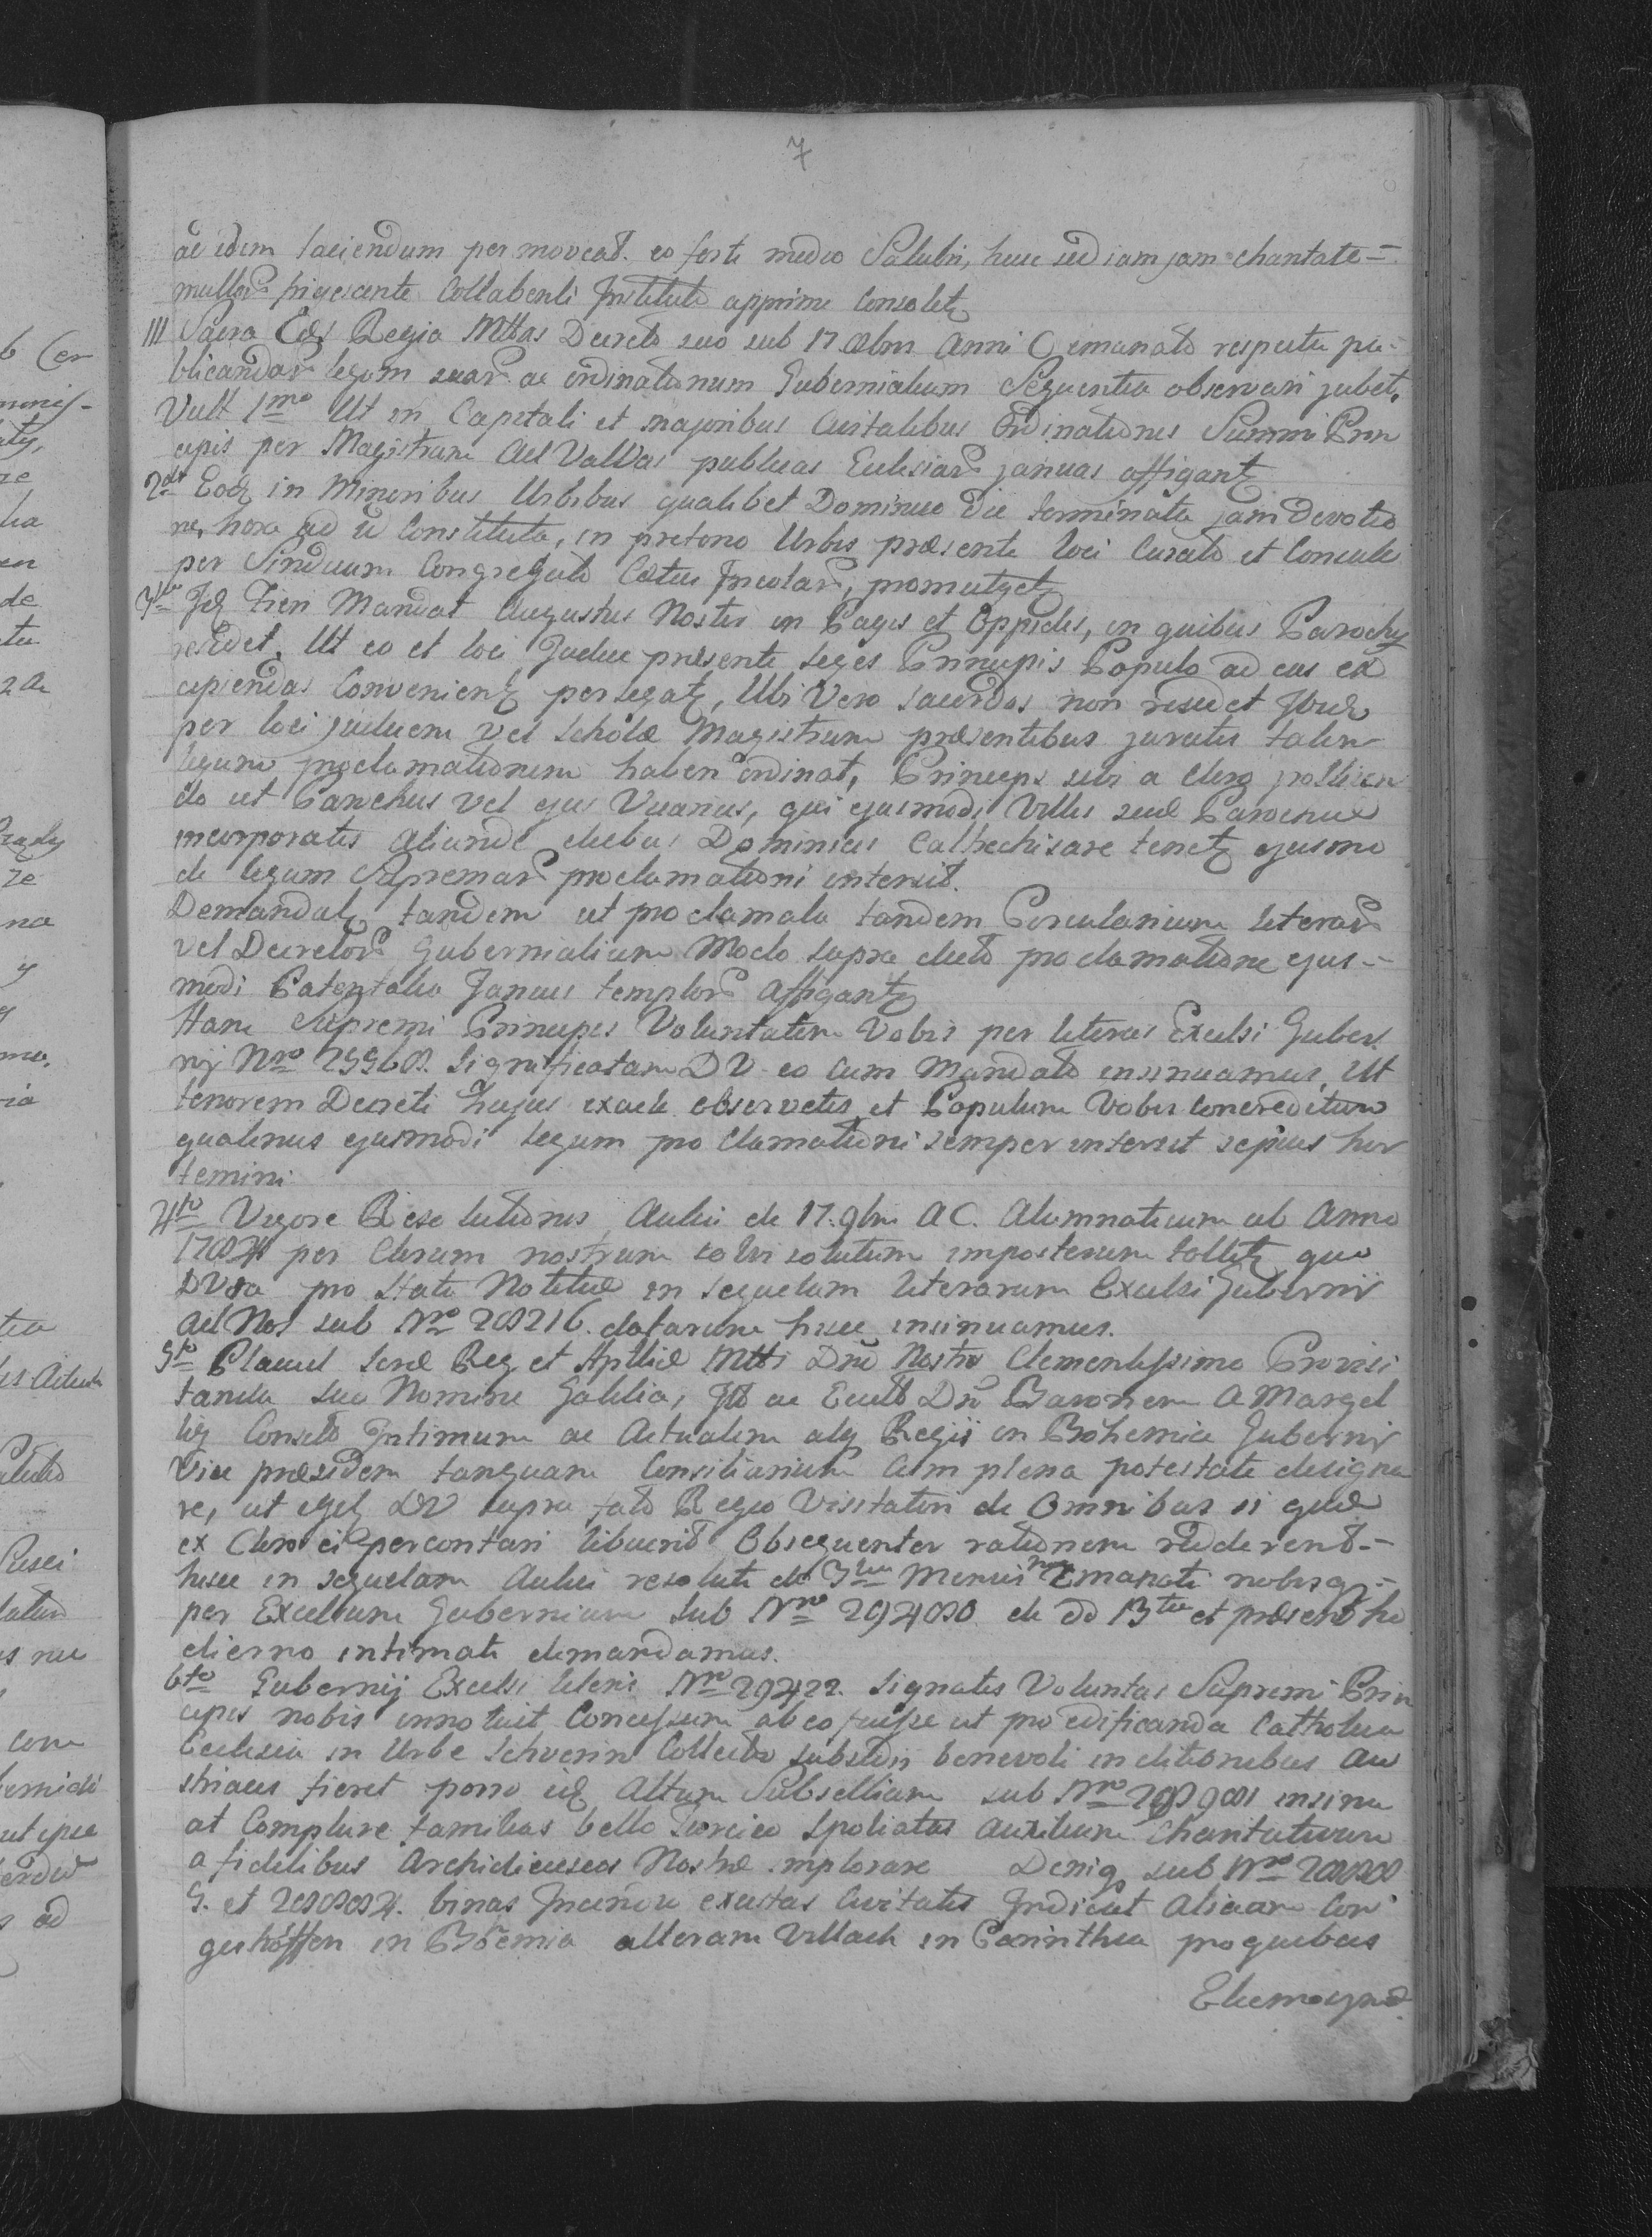 7
ac idem faciendum permoveat. eo forte medio Salubri, huic sed iam jam charitate =
multor frigescente Collabenti Instituto apprime Consoletr
III Sacra Caes Regia Mttas Decreto suo sub 17. 8bris Anni C emanato respectu pu-
blicandar legum suar ac ordinationum Gubernialium Sequentia observari jubet.
Vult 1mo Ut in Capitali et majoribus Civitatibus Ordinationes Summi Prin
cipis per Magistratum Ad Valvas publicas Ecclesiar januas affigantr
2do Eodem in Minoribus Urbibus qualibet Dominica Die terminata jam devotio
ne, hora ad id Constituta, in pretorio Urbis præsente loci Curato et Consule
per Sindicum Congregato Cœtui Incolar, promulgetr
3tio Id Fieri Mandat Augustus Noster in Pagis et Oppidis, in quibus Parochus
residet, Ut eo et loci Judice præsente leges Principis Populo ad eas ex
cipiendas Convenienti perlegatr, Ubi Vero sacerdos non residet Ibid
per loci judicem vel Scholæ Magistrum præsentibus juratis talem
legum proclamationem haberi ordinat, Princeps sibi a Clero pollicen
do ut Parochus vel ejus Vicarius, qui ejusmodi Villis suæ Parochiæ
incorporatis aliunde diebus Dominicis Cathechisare tenetr ejusmo
di legum Supremar proclamationi intersit.
Demandatr tandem ut proclamata tandem Circularium literar
vel Decretor Gubernialium Modo supra dicto proclamatione ejus =
modi Patentalia Januis templor Affigantr
Hanc Supremi Principis Voluntatem Vobis per literas Excelsi Guber
nij Nro 25568. significatam DV eo cum Mandato insinuamus, Ut
tenorem Decreti hujus exacte observetis et Populum Vobis Concreditum
quatenus ejusmodi legum proclamationi semper intersit sepius hor
temini.
4to Vigore Resolutionis Aulici de 17. 9bris AC. Alumnaticum ab Anno
1784 per Clerum nostrum solvi solutum imposterum tollitr quo
DVra pro Statu Notitiæ in sequelam literarum Excelsi Gubernij
Ad Nos sub Nro 28216. datarum hisce insinuamus.
5to Placuit Sacræ Reg et Apllicæ Mtti Dno Nostro Clementissimo Pro visi
tanda suo Nomine Galicia, Ill ac Excell Dn Baronem A Margel
lig Consilio Intimum ac Actualem atq Regii in Bohemia Gubernij
Vice præsidem tanquam Consiliarium Cum plena potestate designa
re, ut DV supra fato Regio Visitatori de Omnibus si quæ
ex Clero ei percontari libuerit Obsequenter rationem redderent =
hisce in sequelam Aulici resoluti de 3tia Mensis 9bris Emanati nobisq =
per Excelsum Gubernium sub Nro 29480 de dd 13tia et præsent ho
dierno intimati demandamus.
6to Gubernij Excelsi literis Nro 29422. signatis Voluntas Supremi Prin
cipis nobis innotuit Concessum ab eo fuisse ut pro edificanda Catholica
Ecclesia in Urbe Schverin Collecta subsidij benevoli in ditionibus Au
striacis fieret porro id Altum Subsellium sub Nro insinu
at Complure familias bello Turcico Spoliatas auxilium Charitativum
a fidelibus Archidieceseos Nostræ implorare Deniq sub Nro
5. et binas Incendio exustas Civitates Indicat Aliam Con
geshöffen in Böemia alteram Villach in Carinthia pro quibus
Elemosynæ